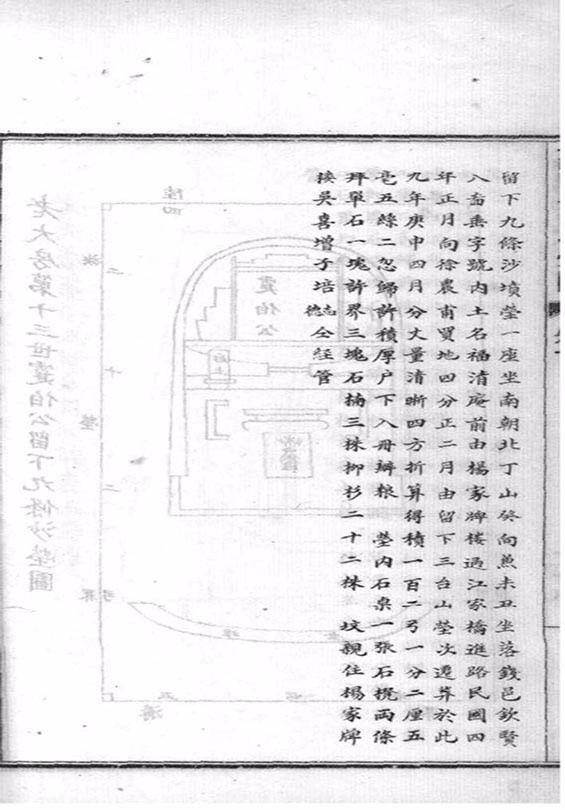 留下九條沙墳塋一座坐南朝北丁山癸向兼未丑坐落錢邑欽賢
八畝垂字號內土名福清庵前由楊家牌樓過江家橋進路民國四
年正月向徐裏甫買地四分正二月由留下三台山塋次遷葬於此
九年庚申四月分丈量清晰四方折算得積一百二弓一分二厘五
毫五絲二忽歸許積厚户下入册辦粮 塋內石桌一張石櫈兩條
拜單石一塊許界三塊石楠三株柳杉二十二株 坟親住楊家牌
樓吳喜增子培志德仝經管
老大房第十三世霆伯公留下九條沙塋圖
霆伯公